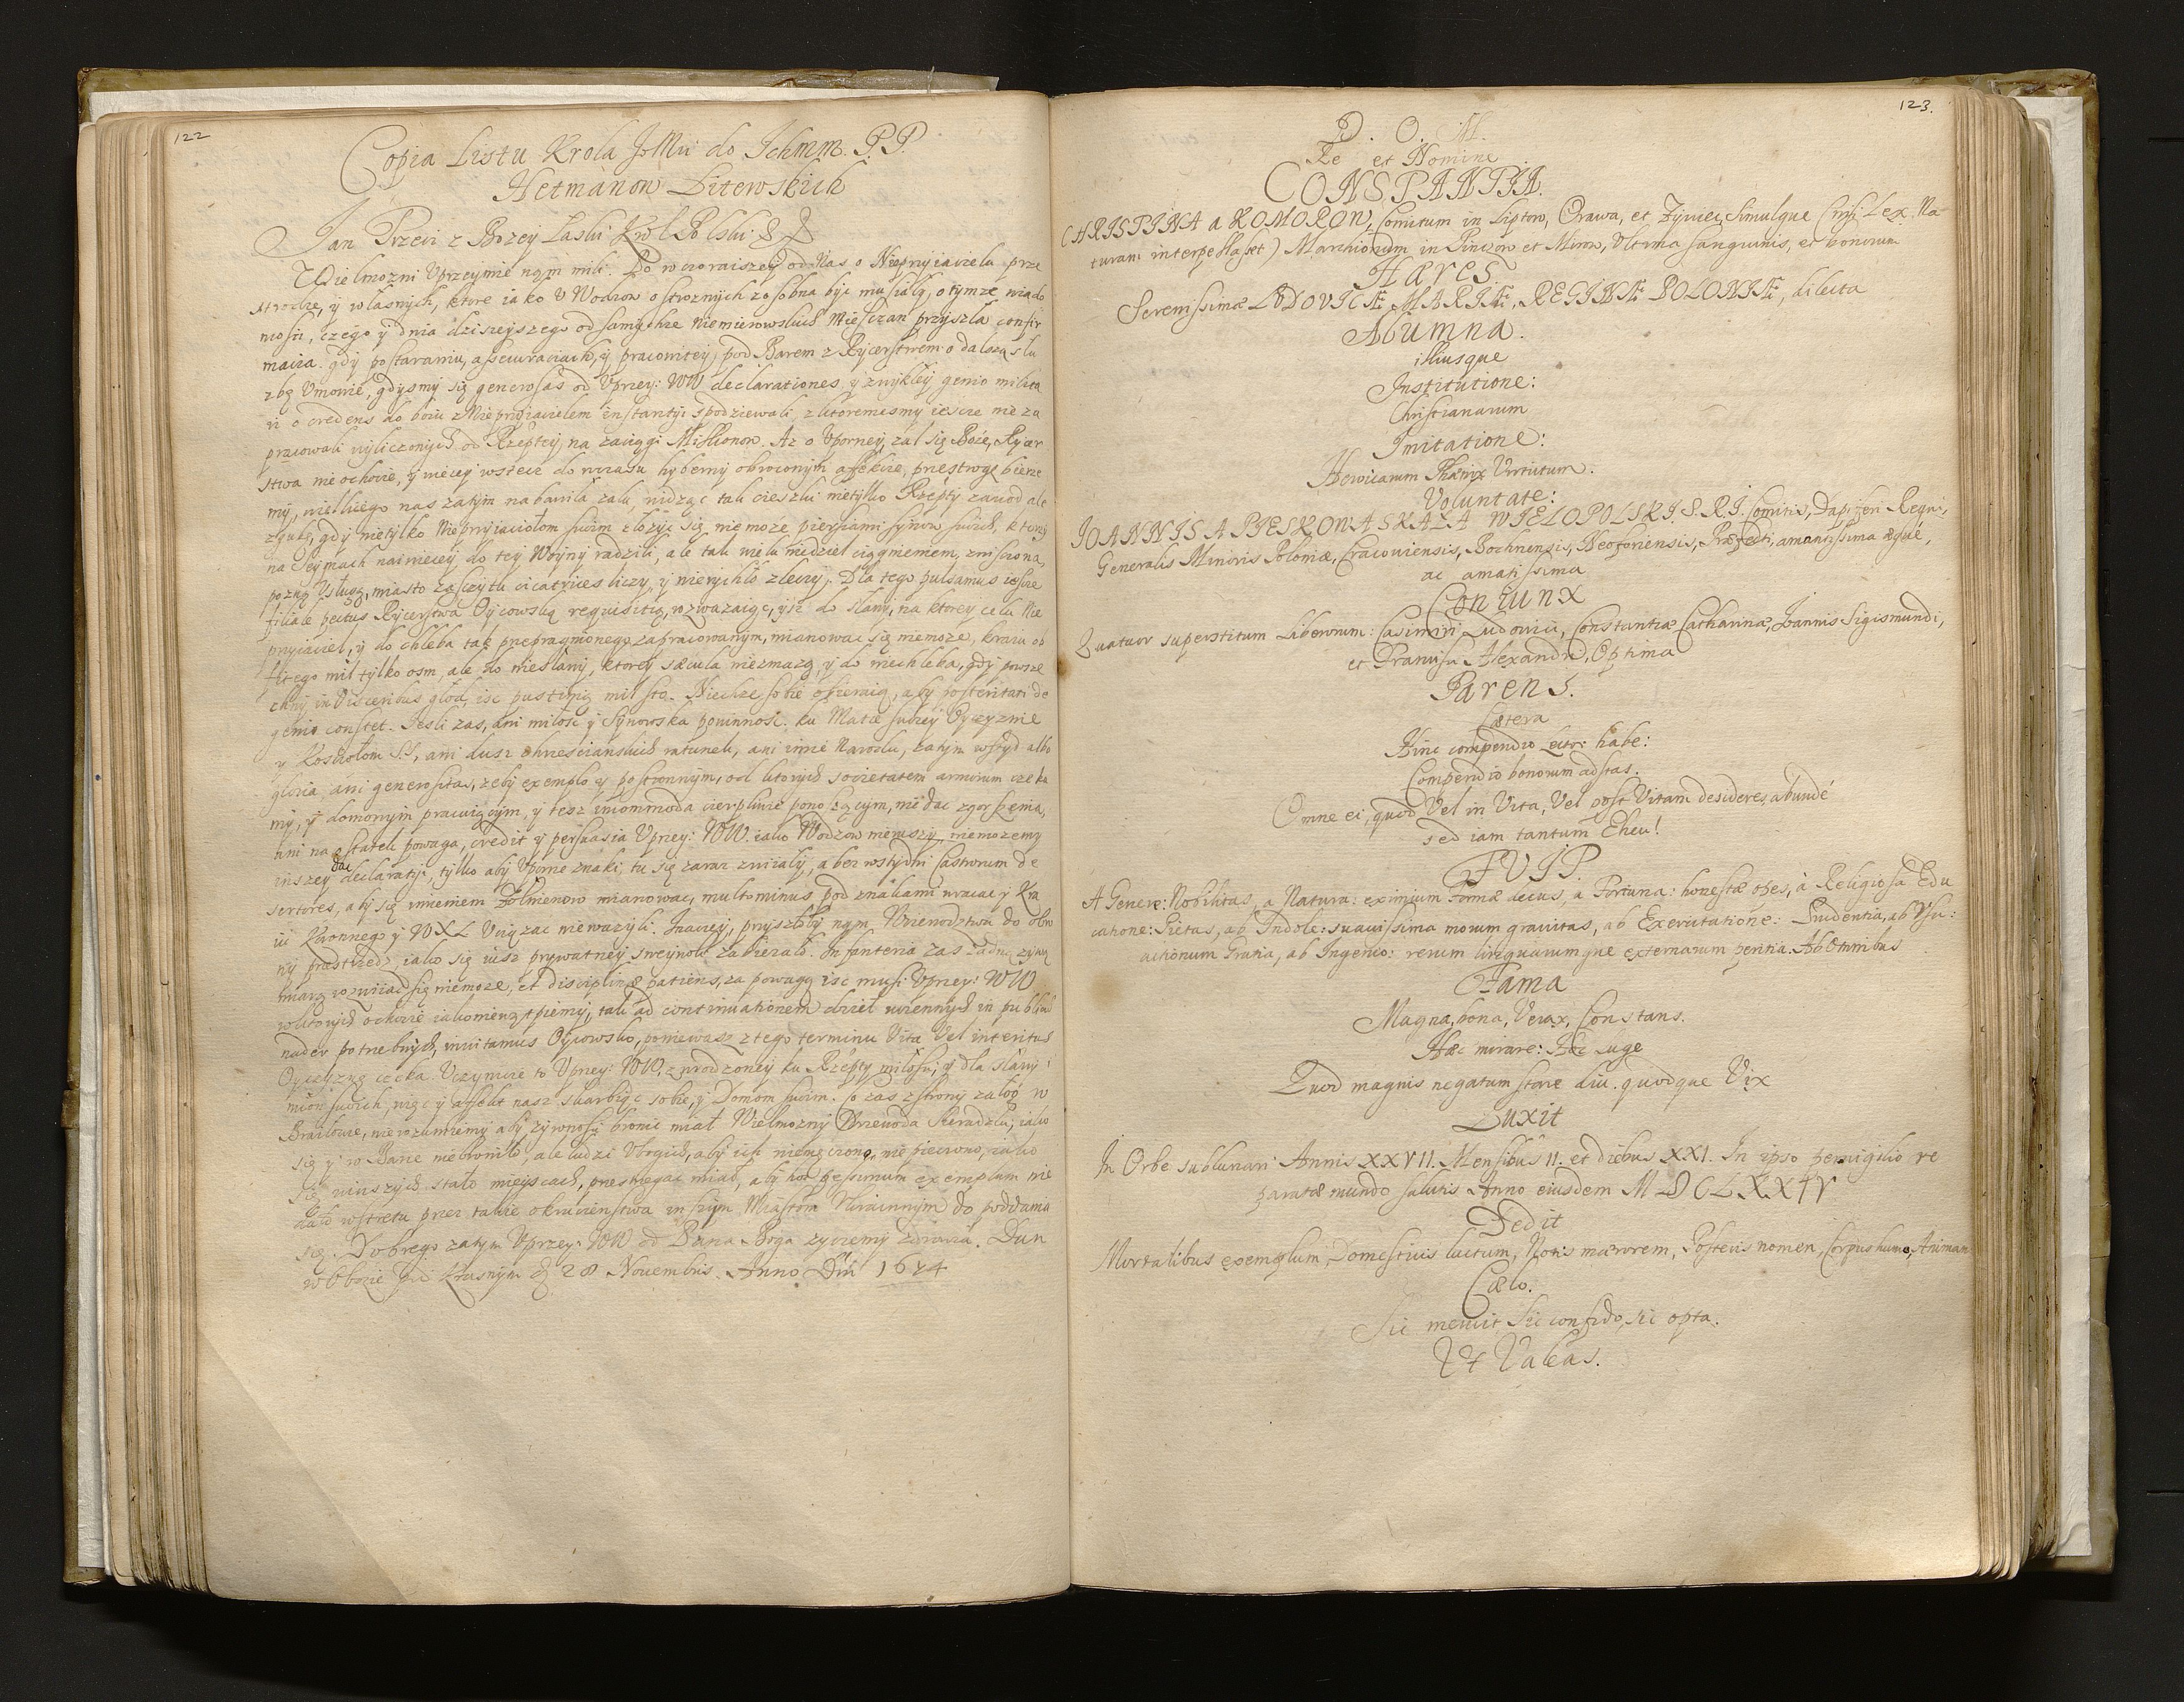 122
Copia Listu Krola JoMci do Ichmm. P.P.
Hetmanow Litewskich
Jan Trzeci z Bozey Laski Krol Polski
Wielmozni Vprzeymie nąm mili. Po wczoraiszey od Nas o Nieprzyiacielu prze
strodze, y własnych, ktore iako v Wodzow ostroznych zosobna bydz musiałÿ, o tymze wiado
mosci, czego y dnia dzisieyszego od samÿchze Niemierowskich Miesczan przyszła confir
matia. gdy po staraniu, assecuratiach, y pracowitey, pod Barem z Rycerstwem o dalszą słu
zbę Vmowie, gdysmy się generosas od Vprzey: WW declarationes, y zwykłey genio milita
ri
pracowali wyliczonych od Rzeptey, na zaciągi Millionow. Az o Vporney, zal się Boze, Rycer
stwa nieochocie, y wiecey wstecz do wczasu hyberny obroconym affekcie, przestrogę bierze
my, niellicego nas zatym nabawiła zalu, widząc tak cieszki nietylko Rzepty zawod ale
zgubę, gdy nietylko Nieprzyiaciołom swoim złozyc się niemoze, piersiami synow swoich, ktorzy
na Seymach naiwiecey do tey Woyny radzili, ale tak wielu niedziel ciągnieniem, znisczona,
pozną Vsługą, miasto zasczytu cicatrices liczy, y nierychło zleczy. Dla tego pulsamus iescze
filiale pectus Rycerstwa Oycowską requisitią, rozwazaiąc, ysz do sławy, na ktorey celu Nie
przyiaciel, y do chleba tak przepragmonego zapracowanym, mianowac się niemoze, kraiu ob
fitego mil tylko osm, ale do niesławy, ktorey sæcula niezmazą, y do niechleba, gdy powsze
chny in visceribus głod, isc pustynią mil sto. Niechze sobie obieraią, aby posteritati de
genio constet. Iesli zas, ani miłosc y Synowska powinnosc ku Matce swoiey Oyczyznie
y Kosciołom SS, ani dusz chrzescianskich ratunek, ani imie Narodu, zatym wstyd albo
gloria, ani generositas, zeby exemplo y postronnym, od ktorych societatem armorum czeka
my, y domowym pracuiącym, y tesz incommoda cierpliwie ponoszącym, nie dac zgorszenia,
ani na ostatek powaga, credit y persuasia Vprzey: WW. iako Wodzow nieruszy, niemozemy
inszey dac declaratÿi, tylko aby Vporne znaki, tu się zaraz zwiialy, a bez wstydni Castrorum de
sertores, aby się imieniem Zołnierzow mianowac, multominus pod znakami wracac y Kra
iu Koronnego y WXL Vciązac niewazyli. Inaczey, przyszłoby nąm Woiewodztwa do obro
ny przestrzedz, iako się iusz prywatney sweywoli zabierało. Infanteria zas
rozwiiac się niemoze, et disciplinæ patiens, za powagą isc musi Vprzey: WW
w ktorych ochocie iako niewątpiemy, tak ad continuationem dzieł wiennych in publico
nader potrzebnych, invitamus Oycowsko, poniewasz z tego terminu Vita Vel interitus
Oyczyznę czeka. Vczynicie to Vprzey: WW. z wrodzoney ku Rzepty miłosci, y dla sławy i
mion swoich, więc y affekt nasz skarbiąc sobie, y Domom swoim. Co zas z strony załog w
Bracławie, nierozumiemy aby zywnosci bronic miał Wielmozny Woiewoda Sieradzki, iako
się y w Barze niebroniło, ale ludzi Vbogich, aby ich niemęczono, nie pieczono, iako
się winszych stało mieyscach, przestrzegac miał, aby hoc pessimum exemplum nie
dało wstrętu przez takie okrucienstwa inszym Miastom Vkrainnym do poddania
się. Dobrego zatym Vprzey: WW od Pana Boga zyczemy zdrowia. Dan
w Obozie pod Krasnym d 28 Nouembris Anno Dni 1674
123.
D. O. M.
Re et Nomine
CONSTANTIA.
CHRISTINA a KOMORON, Comitum in Liptow, Orawa, et Zywiec, Simulque (nisi Lex Na-
turam interpellasset) Marchionum in Pinczow et Mirow, Vltima sanguinis, et bonorum
Hæres
Serenissimæ LVDOVICÆ MARIÆ, REGINÆ POLONIÆ, dilecta
Alumna.
illiusque
Institutione:
Christianarum
Imitatione:
Heroicarum Phænix Virtutum.
Voluntate:
IOANNIS A PIESKOWASKALA WIELOPOLSKI. S. R. I. Comitis, Dapiferi Regni,
Generalis Minoris Poloniæ, Cracouiensis, Bochnensis, Neoforiensis, Præfecti, amantissima æque,
ac amatissima
Coniunx
Quatuor superstitum Liberorum: Casimiri Ludouici, Constantiæ Catharinæ, Ioannis Sigismundi,
et Francisci Alexandri, Optima
Parens.
Cætera
Hinc compendio Lector habe:
Compendio bonorum adstas.
Omne ei, quod Vel in Vita, Vel post Vitam desideres, abundé
sed iam tantum Eheu!
FVIT.
A Genere: Nobilitas, a Natura: eximium Formæ decus, a Fortuna: honestæ opes, à Religiosa Edu
catione: Pietas, ab Indole: suauissima morum grauitas, ab Exercitatione: Prudentia, ab Vsu:
actionum Gratia, ab Ingenio: rerum linguarumque externarum peritia. Ab Omnibus
Fama
Magna, bona, Verax, Constans.
Hæc mirare: Hoc luge
Quod magnis negatum stare diu. quodque Vix
Luxit
In Orbe sublunari Annis XXVII. Mensibus 11. et diebus XXI. In ipso peruigilio re
paratæ mundo salutis Anno eiusdem MDCLXXIV
Dedit
Mortalibus exemplum, Domesticis luctum, Notis mærorem, Posteris nomen, Corpus humo, Animam
Cælo.
Sic meruit, Sic confido, sic opta.
Et Valeas.